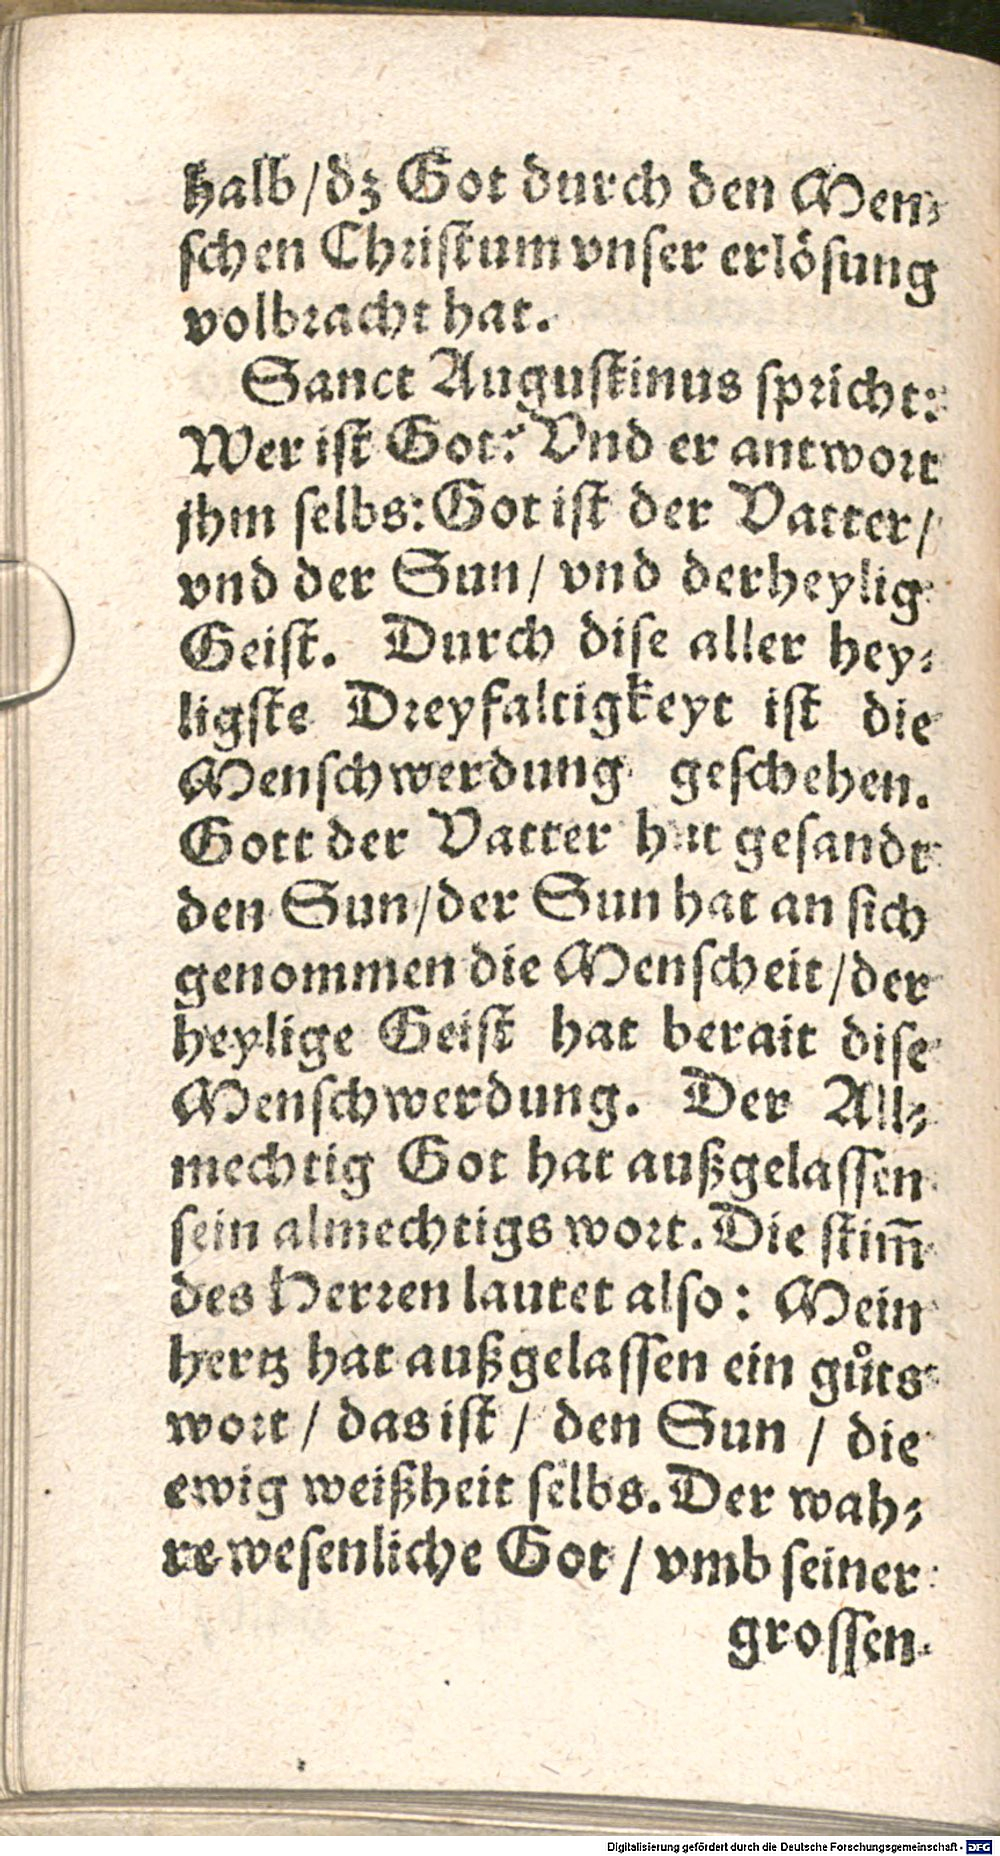 halb/dz Got durch den Men⸗
schen Christum vnser erlösung
volbracht hat.
Sanct Augustinus spricht:
Wer ist Got? Vnd er antwort
jhm selbs: Got ist der Vatter/
vnd der Sun/ vnd derheylig
Geist. Durch dise aller hey⸗
ligste Dreyfaltigkeyt ist die
Menschwerdung geschehen.
Gott der Vatter hat gesandt
den Sun/der Sun hat an sich
genommen die Menscheit/der
heylige Geist hat berait dise
Menschwerdung. Der All⸗
mechtig Got hat außgelassen
sein almechtigs wort. Die stim̅
des Herren lautet also: Mein
hertz hat außgelassen ein gůts
wort/ das ist/ den Sun/ die
ewig weißheit selbs. Der wah⸗
re wesenliche Got/ vmb seiner
grossen
Digitalisierung gefördert durch die Deutsche Forschungsgemeinschaft - DFG